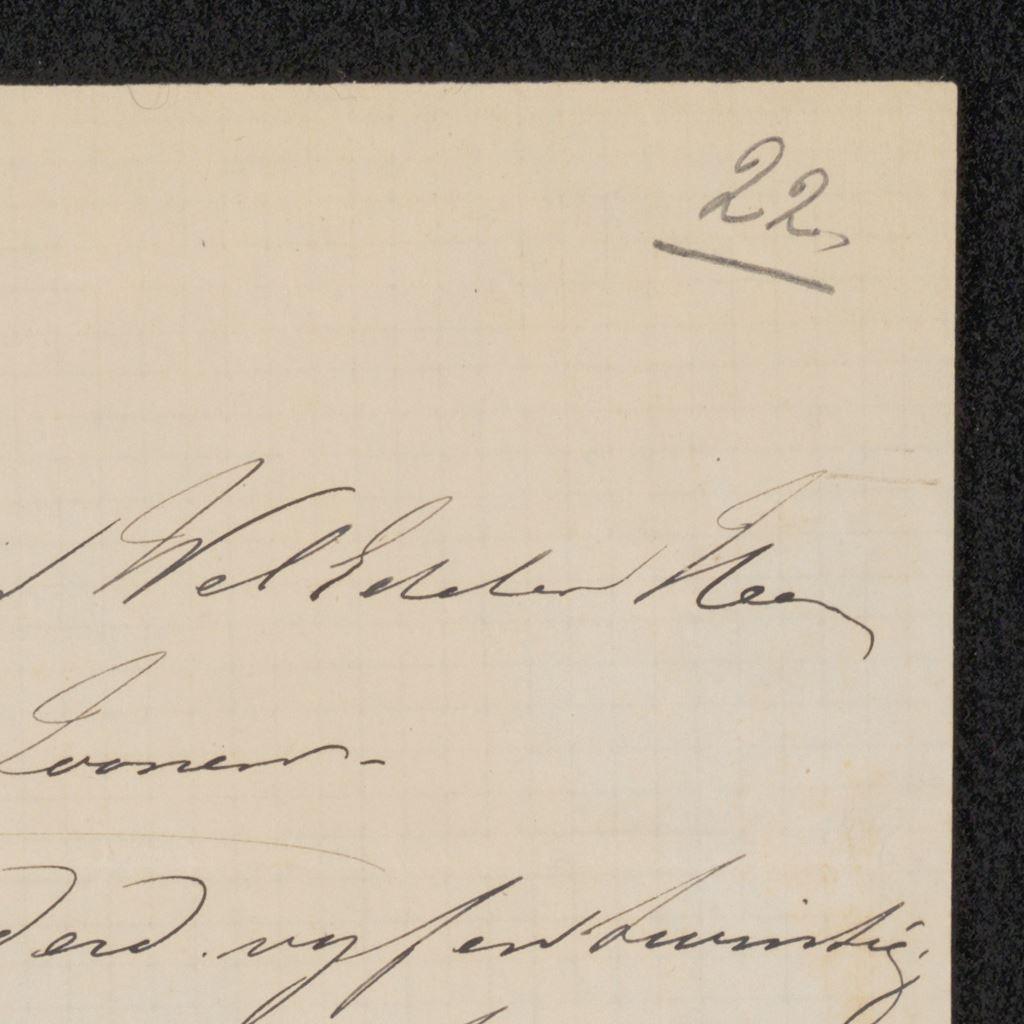 22.
Wel Edelen Heer
Loonen -
derd vyf en twintig